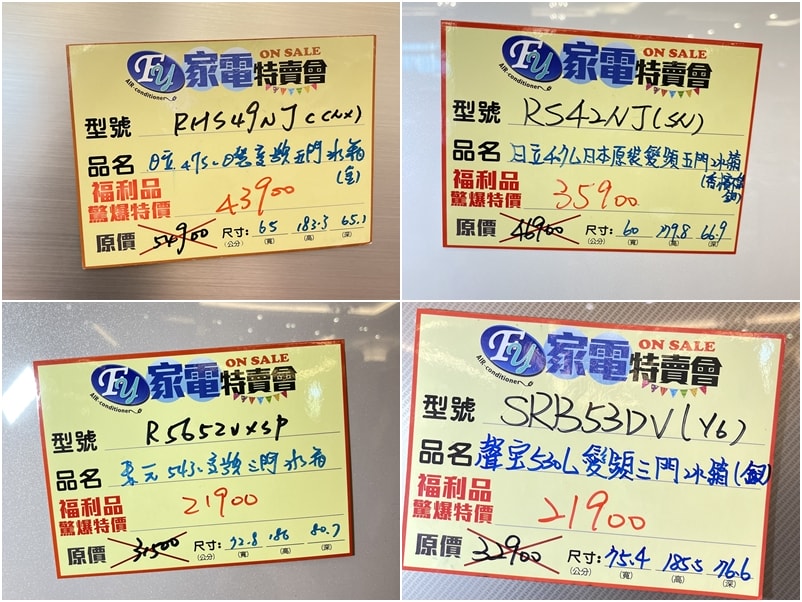 FY 家電特賣會 ON SALE
AIR-conditioner
型號 RHS49NJ (CNX)
品名 日立475L日製變頻五門冰箱
福利品
驚爆特價 43900
原價 54900 尺寸: 65 183.3 65.1
(公分) (寬) (高) (深)
FY 家電特賣會 ON SALE
AIR-conditioner
型號 RS42NJ(SN)
品名 日立407L日本原裝變頻五門冰箱
福利品
驚爆特價 35900
原價 46900 尺寸: 60 179.8 66.9
(公分) (寬) (高) (深)
FY 家電特賣會 ON SALE
AIR-conditioner
型號 R5652VXSP
品名 東元543L變頻三門冰箱
福利品
驚爆特價 21900
原價 31500 尺寸: 72.8 186 80.7
(公分) (寬) (高) (深)
FY 家電特賣會 ON SALE
AIR-conditioner
型號 SRB53DV(Y6)
品名 聲宝530L變頻三門冰箱(銀)
福利品
驚爆特價 21900
原價 32900 尺寸: 75.4 185.5 76.6
(公分) (寬) (高) (深)